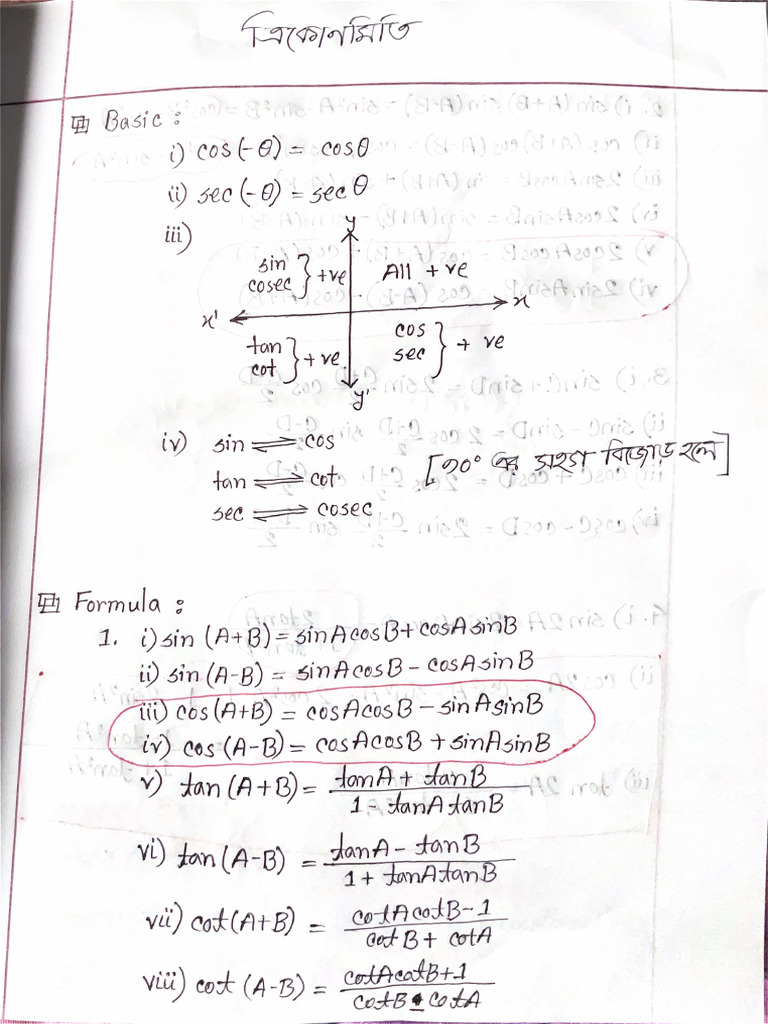 ত্রিকোনমিতি
Basic :
i) cos(-θ) = cosθ
ii) sec(-θ) = secθ
iii)
y
sin cosec } +ve
All +ve
x' x
tan cot } +ve
cos sec } + ve
y'
iv) sin ⇌ cos
tan ⇌ cot [৯০° এর সহগ বিজোড় হলে]
sec ⇌ cosec
Formula :
1. i) sin (A+B) = sinAcosB + cosAsinB
ii) sin (A-B) = sinAcosB - cosAsinB
iii) cos (A+B) = cosAcosB - sinAsinB
iv) cos (A-B) = cosAcosB + sinAsinB
v) tan (A+B) = (tanA + tanB) / (1 - tanAtanB)
vi) tan (A-B) = (tanA - tanB) / (1 + tanAtanB)
vii) cot (A+B) = (cotAcotB-1) / (cotB + cotA)
viii) cot (A-B) = (cotAcotB+1) / (cotB - cotA)